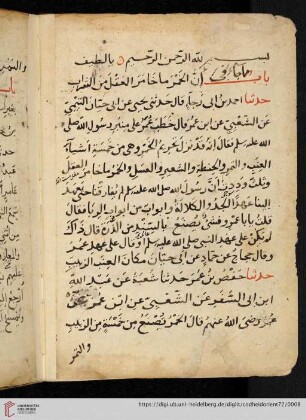 بسم الله الرحمن الرحيم يا لطيف
باب ما جاء في أن الخمر ما خامر العقل من الشراب
حدثنا احمد بن ابي رجاء قال حدثني يحيى عن ابي حيان التيمي
عن الشعبي عن ابن عمر قال خطب عمر على منبر رسول الله صلى
الله عليه وسلم فقال انه قد نزل تحريم الخمر وهي من خمسة اشياء
العنب والتمر والحنطة والشعير والعسل والخمر ما خامر العقل
وثلاث وددت ان رسول الله صلى الله عليه وسلم لم يفارقنا حتى يعهد
الينا عهدا الجد والكلالة وابواب من ابواب الربا قال
قلت يا با عمرو فشي يصنع بالسند من الرز قال ذاك
لم يكن على عهد النبي صلى الله عليه وسلم او قال على عهد عمر
وقال حجاج عن حماد عن ابي حيان مكان العنب الزبيب
حدثنا حفص بن عمر حدثنا شعبة عن عبد الله
ابن ابي السفر عن الشعبي عن ابن عمر عن
عمر رضي الله عنهم قال الخمر يصنع من خمسة من الزبيب
والتمر
https://digi.ub.uni-heidelberg.de/diglit/codheidorient72/0003
UNIVERSITÄTS-
BIBLIOTHEK
HEIDELBERG